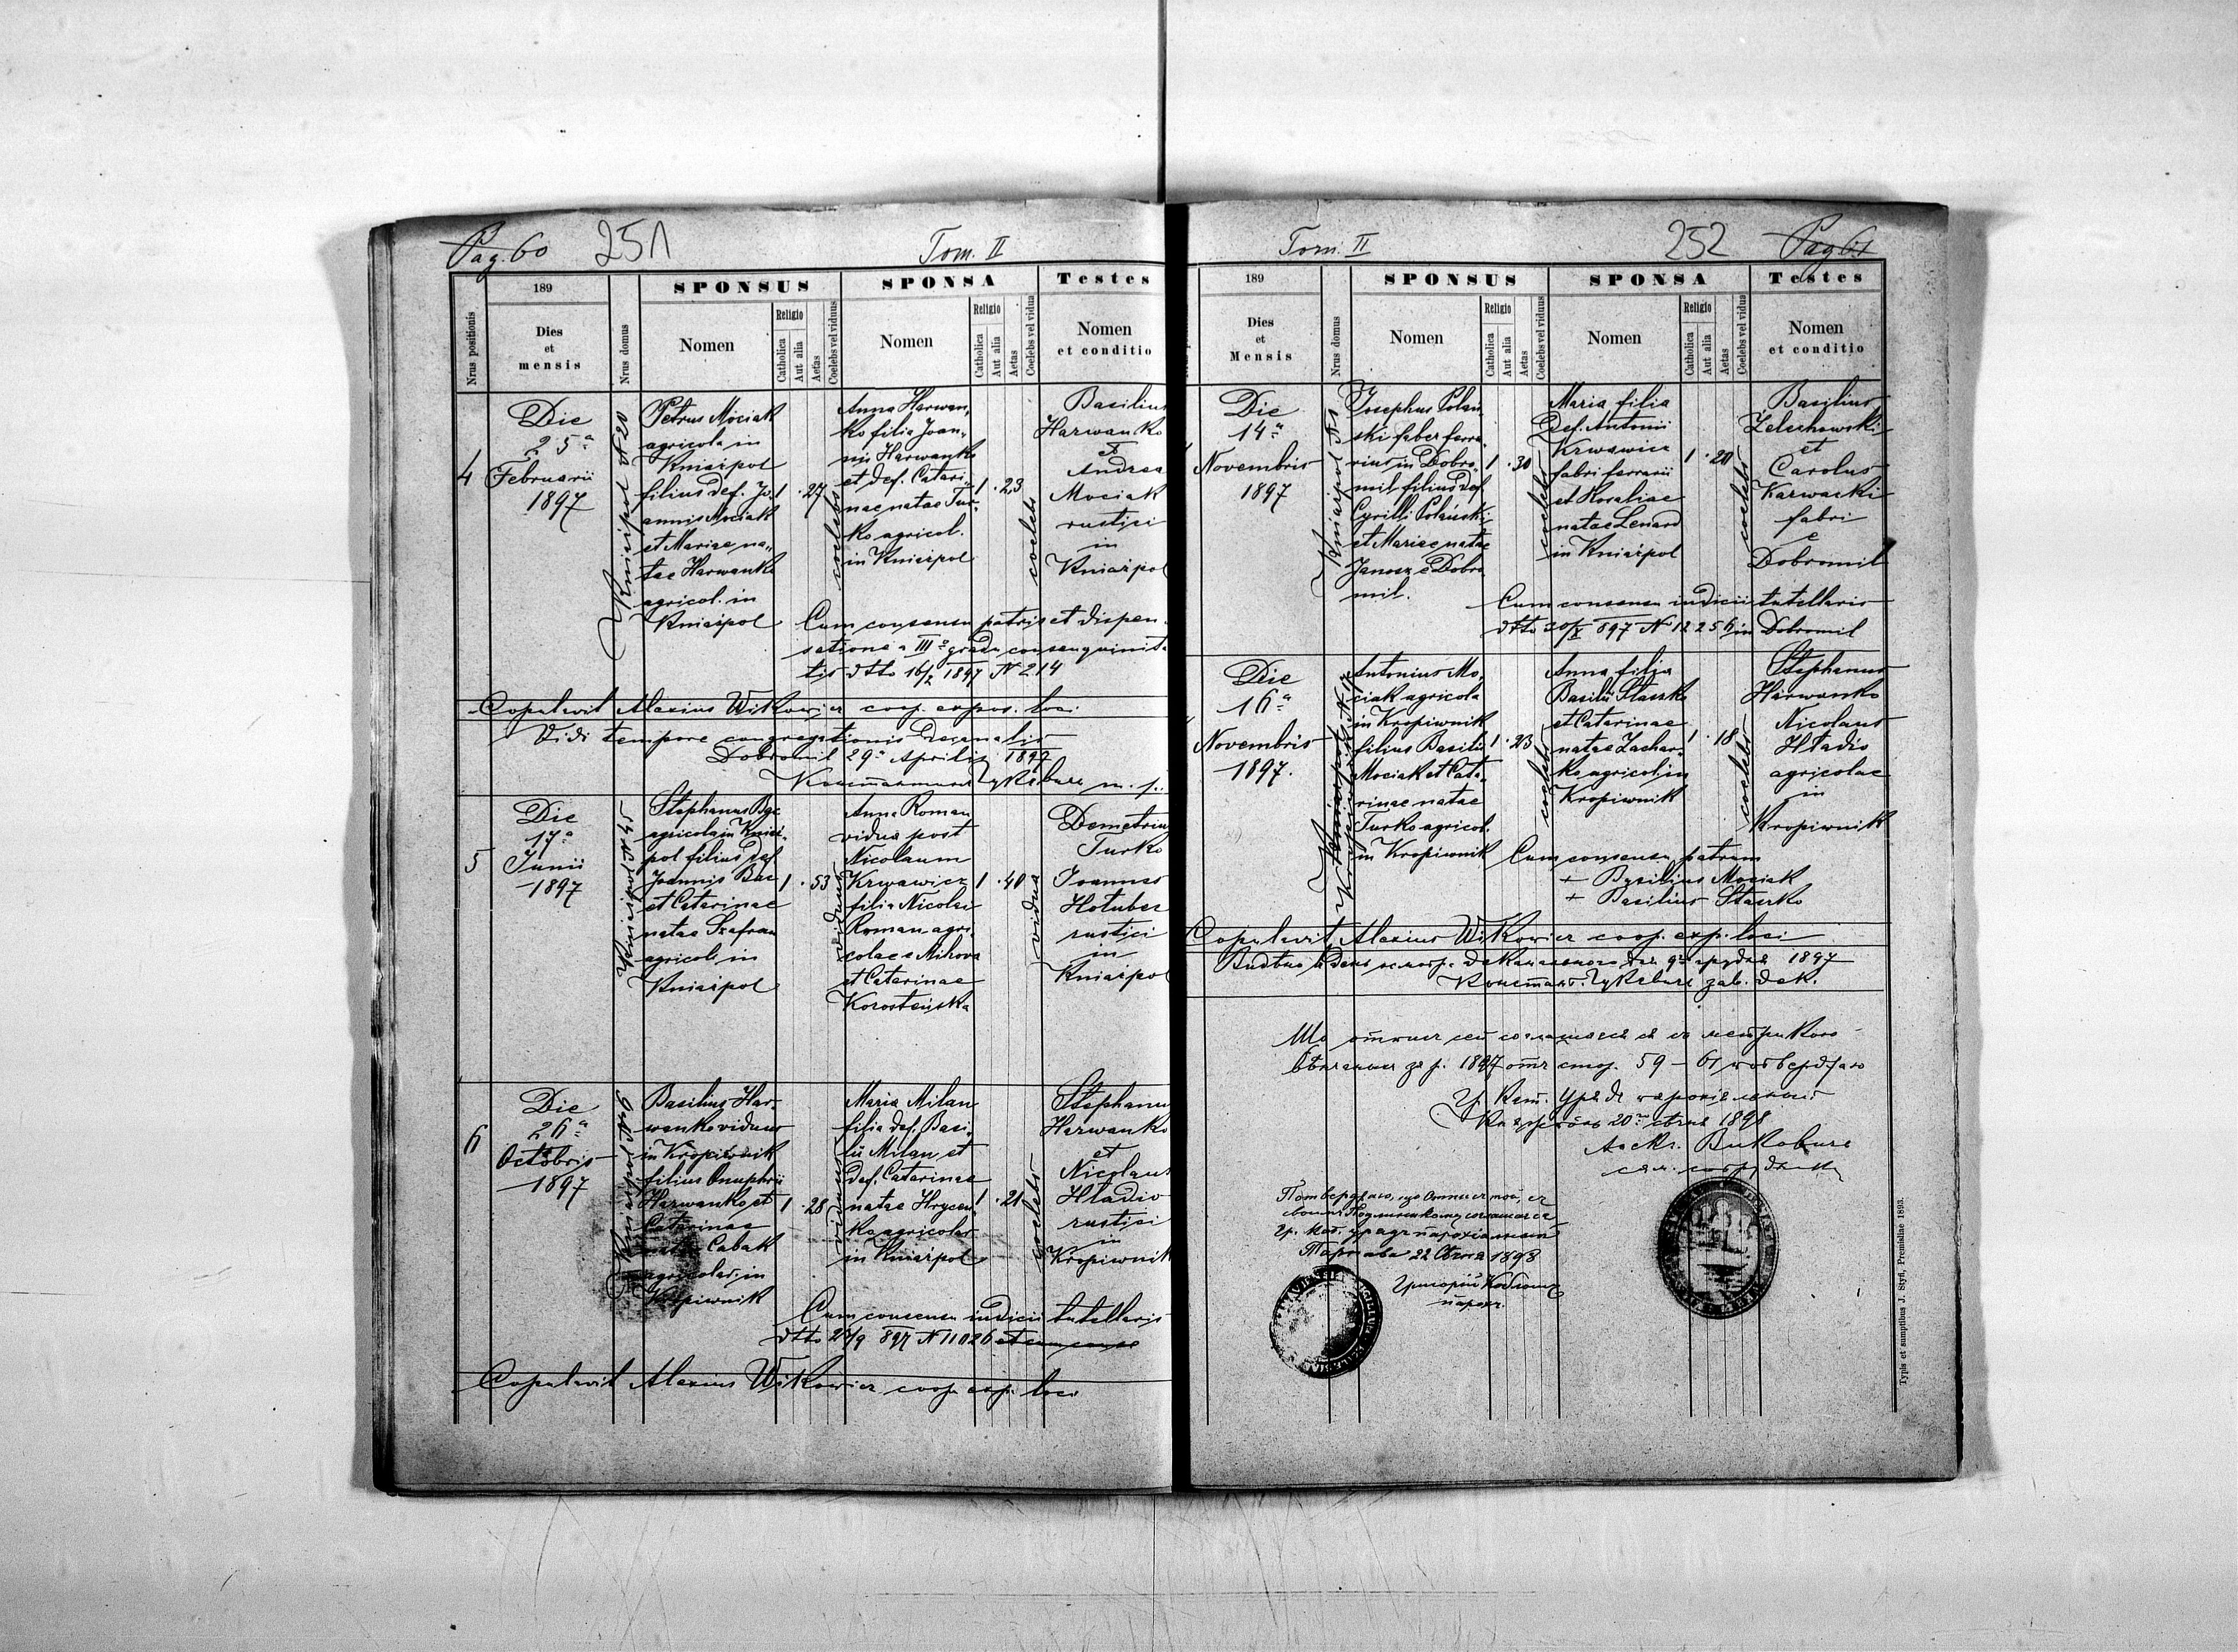 Pag. 60
251
Tom. II
189
SPONSUS
SPONSA
Testes
Nrus positionis
Dies
et
mensis
Nrus domus
Nomen
Religio
Catholica
Aut alia
Aetas
Coelebs vel viduus
Nomen
Religio
Catholica
Aut alia
Aetas
Coelebs vel vidua
Nomen
et conditio
4
Die
25a
Februarii
1897
Kniażpol N 20
Petrus Mociak
agricola in
Kniażpol
filius def. Jo,
annis Mociak
et Mariae na,,
tae Harwanko
agricol. in
Kniażpol
1 . 27
coelebs
Anna Harwan,
ko filia Joan,,
nis Harwanko
et def. Catari,,
nae natae Tur,,
ko agricol.
in Kniażpol
1 . 23
coelebs
Basilius
Harwanko
et
Andrea
Mociak
rustici
in
Kniażpol
Cum consensu patris et dispen,
satione a III gradu consanguinita
tis dtto 16/2 1897 N 214
Copulavit Alexius Witkowicz coop. expos. loci
Vidi tempore congregationis decanalis
Dobromil 29a Aprilis 1897
m. p.
5
Die
17a
Junii
1897
Kniażpol N 45
Stephanus Bac
agricola in Kniaż,
pol filius def.
Joannis Bac
et Catarinae
natae Szafran
agricol. in
Kniażpol
1 . 53
viduus
Anna Roman
vidua post
Nicolaum
Krwawicz
filia Nicolai
Roman agri,
colae e Mihowa
et Catarinae
Korosteńska
1 . 40
vidua
Demetrius
Turko
Joannes
Hołubec
rustici
in
Kniażpol
6
Die
26a
Octobris
1897
Kniażpol N
Basilius Har,
wanko viduus
in Kropiwnik
filius Onuphrii
Harwanko et
Catarinae
natae Cabak
agricolar. in
Kropiwnik
1 . 28
viduus
Maria Milan
filia def. Basi,
lii Milan et
def. Catarinae
natae Hrycen,
ko agricolar
in Kniażpol
1 . 21
coelebs
Stephanus
Harwanko
et
Nicolaus
Hładio
rustici
in
Kropiwnik
Cum consensu iudicii tutellaris
dtto 897 N 11026
Copulavit Alexius Witkowicz coop. exp. loci
Tom. II
252
Pag 61
189
SPONSUS
SPONSA
Testes
Dies
et
Mensis
Nrus domus
Nomen
Religio
Catholica
Aut alia
Aetas
Coelebs vel viduus
Nomen
Religio
Catholica
Aut alia
Aetas
Coelebs vel vidua
Nomen
et conditio
Die
14a
Novembris
1897
Kniażpol N
Josephus Polań
ski faber ferra,
rius in Dobro,
mil filius def.
Cyrilli Polański
et Mariae natae
Janosz e Dobro
mil.
1 . 30
coelebs
Maria filia
def. Antonii
Krwawicz
fabri ferrarii
et Rosaliae
natae Lenard
in Kniażpol
1 . 20
coelebs
Basilius
Zelechowski
et
Carolus
Karwacki
fabri
e
Dobromil
Cum consensu iudicii tutellaris
dtto 20/X 897 No 12256 in Dobromil
Die
16a
Novembris
1897.
Antonius Mo,
ciak agricola
in Kropiwnik
filius Basilii
Mociak et Cata,
rinae natae
Turko agricol.
in Kropiwnik
1 . 23
coelebs
Anna filia
Basilii Staszko
et Catarinae
natae Zachar,
ko agricol. in
Kropiwnik
1 . 18
coelebs
Stephanus
Harwanko
Nicolaus
Hładio
agricolae
in
Kropiwnik
Cum consensu patrum
+ Basilius Mociak
+ Basilius Staszko
Copulavit Alexius Witkowicz coop. exp. loci
1897
зав. дек.
Що
за р. 1897 стор. 59 – 61 потверджаю
Гр. кат. Уряд парохіяльный
1898
Потверджаю, що
Гр. кат. уряд парохіяльный
Тарнава 22 1898
Григорий
парох
Typis et sumptibus J. Styfi, Premisliae 1893.